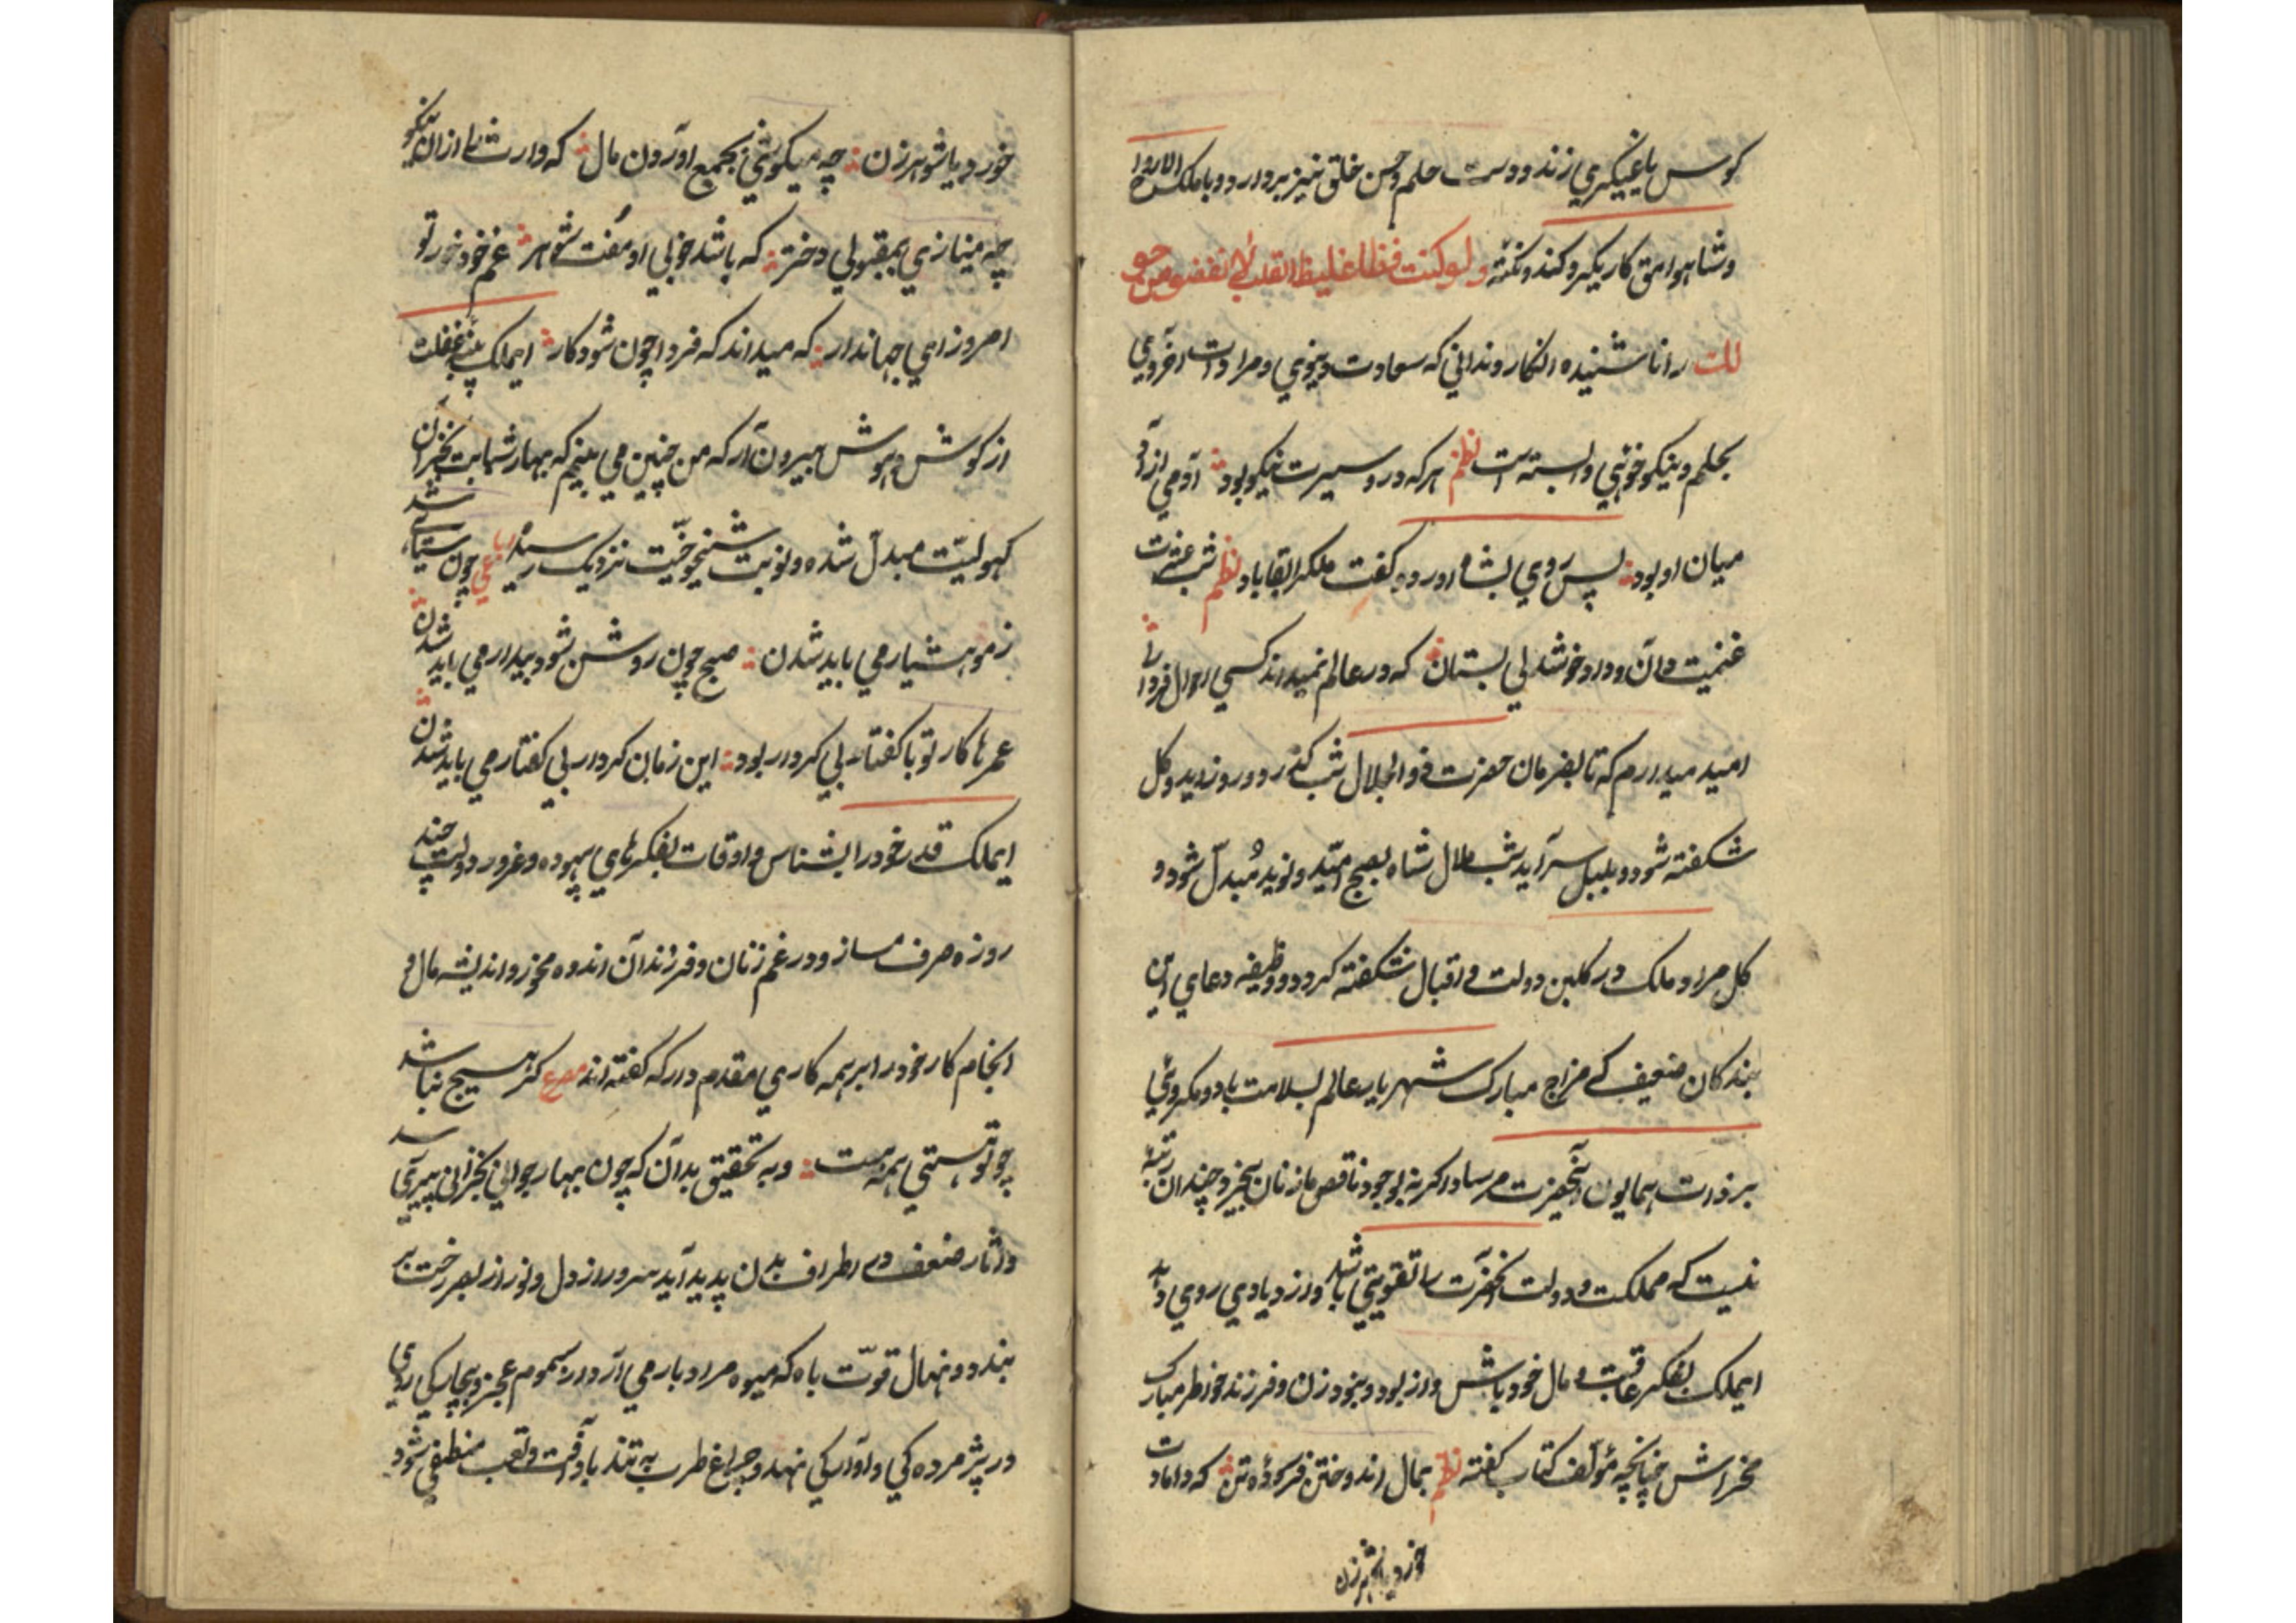 کوس یاغیگری زند و دست حلم و حسن خلق نیز بر دارد و با ملک
و شاهوا مق کار بگیر و کند و نکته ولو کنت فظا غلیظ القلب لانفضو من حو
لك را ناشنیده انگارد ندانی که سعادت دینوی و مرادات اخروی
بحلم و نیکو خوئی وابسته است نظم هر که در و سیرت نیکو بود آدمی از
میان او بود پس روی بشاه اورد و گفت ملکرا بقا باد نظم شب عشرت
غنمیت دان و داد خوشدلی بستان که در عالم نمیداند کسی احوال فردا
امید میدارم که تا بفرمان حضرت ذوالجلال شب گذرد و روز اید و گل
شکفته شود و بلبل سرآید شب ملال شاه بصبح امید و نوید مُبدّل شود و
گل مراد ملک در گلبن دولت و اقبال شکفته گردد و وظیفه دعای این
بندگان ضعیف که مزاج مبارک شهریار عالم بسلامت باد و مکروئی
بر ذات همایون آنحضرت مرساد اگر نه بوجود ناقص ما زنان بیخرد چندان رتبهٔ
نیست که مملکت و دولت آنحضرت را تقویتی باشد و ازدیادی روی دهد
ایملک بفکر عاقبت و مال خود باش و از بود و نبود زن و فرزند خاطر مبارک
مخراش چنانچه مؤلف کتاب گفته نظم بمال اندوختن فرسوده تن که دامادت
خورد یا شوهر زن
خورد یا شوهر زن چه میکوشی بجمیع اوردن مال که وارث را از ان نیکو
چه مینازی بمقبولی دختر که باشد خوبی او مُفت شوهر غم خود خور تو
امروز ای جهاندار که میداند که فردا چون شود کار ایملک پنبه غفلت
از گوش هوش بیرون آر که من چنین می بینم که بهار شبابت بخزان
کهولیّت مبدّل شده و نوبت شیخوخیّت نزدیک رسید رباعی چون شد سیاهی
زمو هشیار می باید شدن صبح چون روشن شود بیدار می باید شدن
عمرها کار تو با گفتار بی کردار بود این زمان کردار بی گفتار می باید شدن
ایملک قدر خود را بشناس و اوقات بفکرهای بیهوده و غرور دولت چند
روزه صرف مساز و در غم زنان و فرزندان اندوه مخور و اندیشه مال و
انجام کار خود را بر همه کاری مقدم دار که گفته اند مصرع گر هیچ نباشد
چو تو هستی همه هست و به تحقیق بدان که چون بهار جوانی بخزانی پیری رسد
و اثار ضعف در اطراف بدن پدید آید سرور از دل و نور از بصر رخت بر
بندد و نهال قوّت باه که میوه مراد بار می آرد از سموم عجز و بیچارگی روی
در پژمرده گی و آوارگی نهد و چراغ طرب به تند باد آفت و تعب منطفی شود